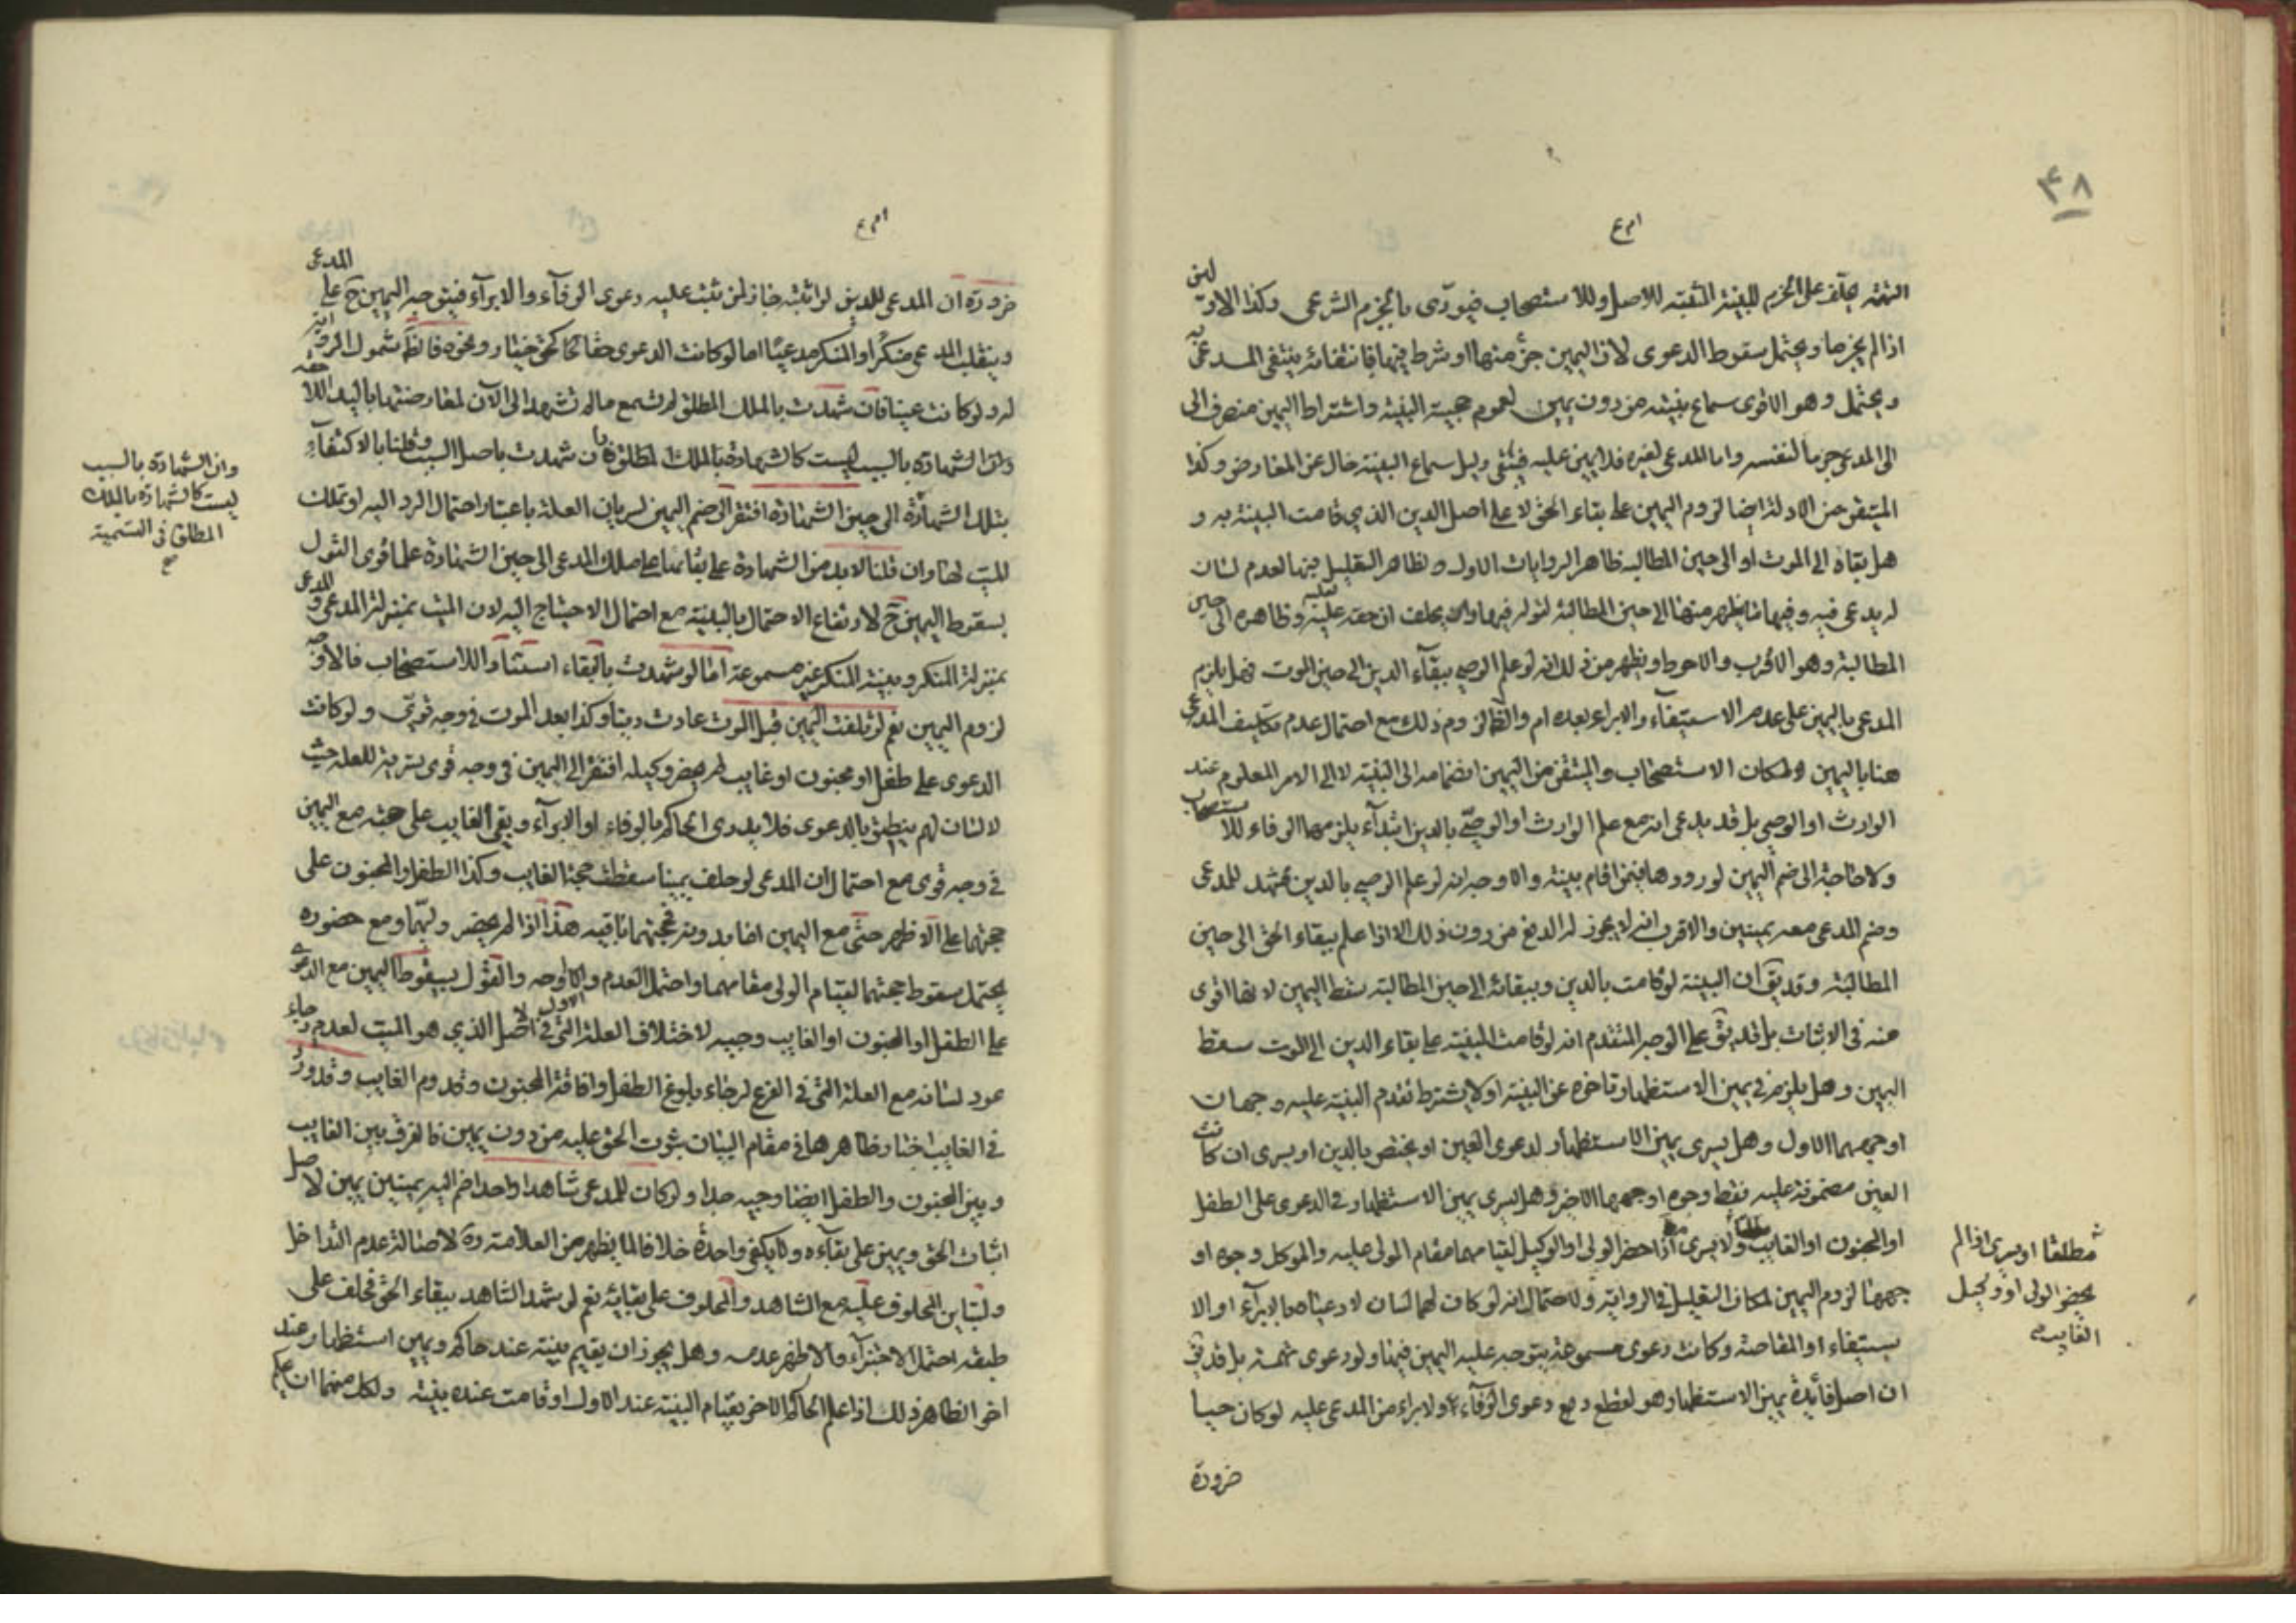 ٤٨
التهمة يحلف على الجزم للبينة المثبتة للاصل وللاستصحاب فيؤدى بالجزم الشرعى وكذا الاذن لمن
اذا لم يجزما ويحتمل سقوط الدعوى لان اليمين جزء منها او شرط فيها فبانتفائه ينتفى المدعى به
ويحتمل وهو الاقوى سماع بينته من دون يمين لعموم حجية البينة واشتراط اليمين منصرف الى
الى المدعى جزما لنفسه واما المدعى لغيره فلا يمين عليه فيبقى دليل سماع البينة خال عن المعارض وكذا
المتيقن من الادلة ايضا لزوم اليمين على بقاء الحق لا على اصل الدين الذي قامت البينة به و
هل بقاه الى الموت او الى حين المطالبة ظاهر الروايات الاول وظاهر التعليل فيها لعدم لسان
له يدعى فيه وفيها ما يظهر منها الى حين المطالبة لقوله فيها وان حقه عليه وظاهره الى حين
المطالبة وهو الاقرب والاحوط ويظهر من ذلك انه لو علم الوصي ببقآء الدين الى حين الموت فهل يلزم
المدعى باليمين على عدم الاستيفآء والابراء بعده ام لا والظ لزوم ذلك مع احتمال عدم تكليف المدعى
هنا باليمين لمكان الاستصحاب والمتيقن من اليمين انضمامه الى البينة لا الى الامر المعلوم عند
الوارث او الوصي بل قد يدعى انه مع علم الوارث او الوصي بالدين ابتدآء يلزمهما الوفاء للاستصحاب
ولا حاجة الى ضم اليمين لورودها فيمن اقام بينة والاوجه انه لو علم الوصي بالدين شهد للمدعى
وضم المدعى معه يمينين والاقرب انه لا يجوز له الدفع من دون ذلك الا اذا علم ببقاء الحق الى حين
المطالبة وقد يق ان البينة لو قامت بالدين وببقائه الى حين المطالبة سقط اليمين لانها اقوى
منه فى الاثبات بل قد يق على الوجه المتقدم انه لو قامت البينة على بقاء الدين الى الموت سقط
اليمين وهل يلزم في يمين الاستظهار تاخره عن البينة او لا يشترط تقدم البينة عليه وجهان
اوجههما الاول وهل يسرى يمين الاستظهار لدعوى العين او يختص بالدين او يسرى ان كانت
العين مضمونة عليه فقط وجوه اوجهها الاخير وهل يسرى يمين الاستظهار في الدعوى على الطفل
او المجنون او الغايب ولا يسرى اذا حضر الولى او الوكيل لقيامهما مقام المولى عليه والموكل وجوه او
مطلقا او يسرى اذا لم
يحضر الولى او وكيل
الغايب
جهها لزوم اليمين لمكان التعليل في الرواية ولاحتمال انه لو كان لهما لسان لادعيا الابرآء او الا
ستيفاء او المقاصة وكانت دعوى مسموعة يتوجه عليه اليمين فيها ولو دعوى تهمة بل قد يق
ان اصل فائدة يمين الاستظهار هو لقطع دفع دعوى الوفآء والابراء من المدعى عليه لو كان حيا
ضرورة
ضرورة ان المدعى للدين لو اثبته جاز لمن تثبت عليه دعوى الوفآء والابرآء فيتوجه اليمين ح على المدعى
وينقلب المدعى منكرا والمنكر مدعيا اما لو كانت الدعوى حقا كحق خيار ونحوه فالظ شمول الرواية
له ولو كانت عينا فان شهدت بالملك المطلق لم تسمع ما لم تشهد الى الآن لمعارضتها باليد
وان الشهادة بالسبب ليست كالشهادة بالملك المطلق فان شهدت باصل السبب وقلنا بالاكتفآء
وان الشهادة بالسبب
ليست كالشهادة بالملك
المطلق فى التسمية
صح
بتلك الشهادة الى حين الشهادة افتقر الى ضم اليمين لسريان العلة باعتبار احتمال الرد اليه او تملك
الميت لها وان قلنا لا بد من الشهادة على بقائها على ملك المدعى الى حين الشهادة علما قوى القول
بسقوط اليمين ح لارتفاع الاحتمال بالبينة مع احتمال الاحتياج اليه لان الميت بمنزلة المدعى والمدعى
بمنزلة المنكر وبينة المنكر غير مسموعة اما لو شهدت بالبقاء استنادا للاستصحاب فالاوجه
لزوم اليمين نعم لو تلفت العين قبل الموت عادت دينا وكذا بعد الموت في وجه قوي ولو كانت
الدعوى على طفل او مجنون او غايب لم يحضر وكيله افتقر الى اليمين فى وجه قوى لسراية العلة حيث
لا لسان لهم ينطق بالدعوى فلا يدرى الحاكم بالوفاء او الابرآء ويبقى الغايب على حجته مع اليمين
في وجه قوى مع احتمال ان المدعى لو حلف يمينا سقطت حجة الغايب وكذا الطفل والمجنون على
حجتهما على الاظهر حتى مع اليمين اما بدونه فحجتهما باقية هذا اذا لم يحضر وليهما ومع حضوره
يحتمل سقوط حجتهما لقيام الولى مقامهما واحتمل العدم والاول اوجه والقول بسقوط اليمين مع الدعوى
على الطفل او المجنون او الغايب وجيه لاختلاف العلة التى في الاصل الذي هو الميت لعدم رجاء
عود لسانه مع العلة التى في الفرع لرجاء بلوغ الطفل وافاقة المجنون وقدوم الغايب وقد ورد
في الغايب اخبار ظاهرها في مقام البيان ثبوت الحق عليه من دون يمين فالفرق بين الغايب
وبين المجنون والطفل ايضا وجيه جدا ولو كان للمدعى شاهدا واحدا ضم اليه يمينين يمين لاصل
اثبات الحق ويمين على بقآءه ولا يكفى واحدة خلافا لما يظهر من العلامة ره لاصالة عدم التداخل
ولتباين المحلوف عليه مع الشاهد والمحلوف على بقائه نعم لو شهد الشاهد ببقاء الحق فحلف على
طبقه احتمل الاجتزآء والاظهر عدمه وهل يجوز ان يقيم بينة عند حاكم ويمين استظهار عند
اخر الظاهر ذلك اذا علم الحاكم الاخر بقيام البينة عند الاول او قامت عنده بينة ولكل منهما ان يحكم